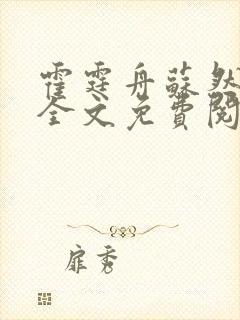 霍霆舟蘇然
全文免費閱
扉秀